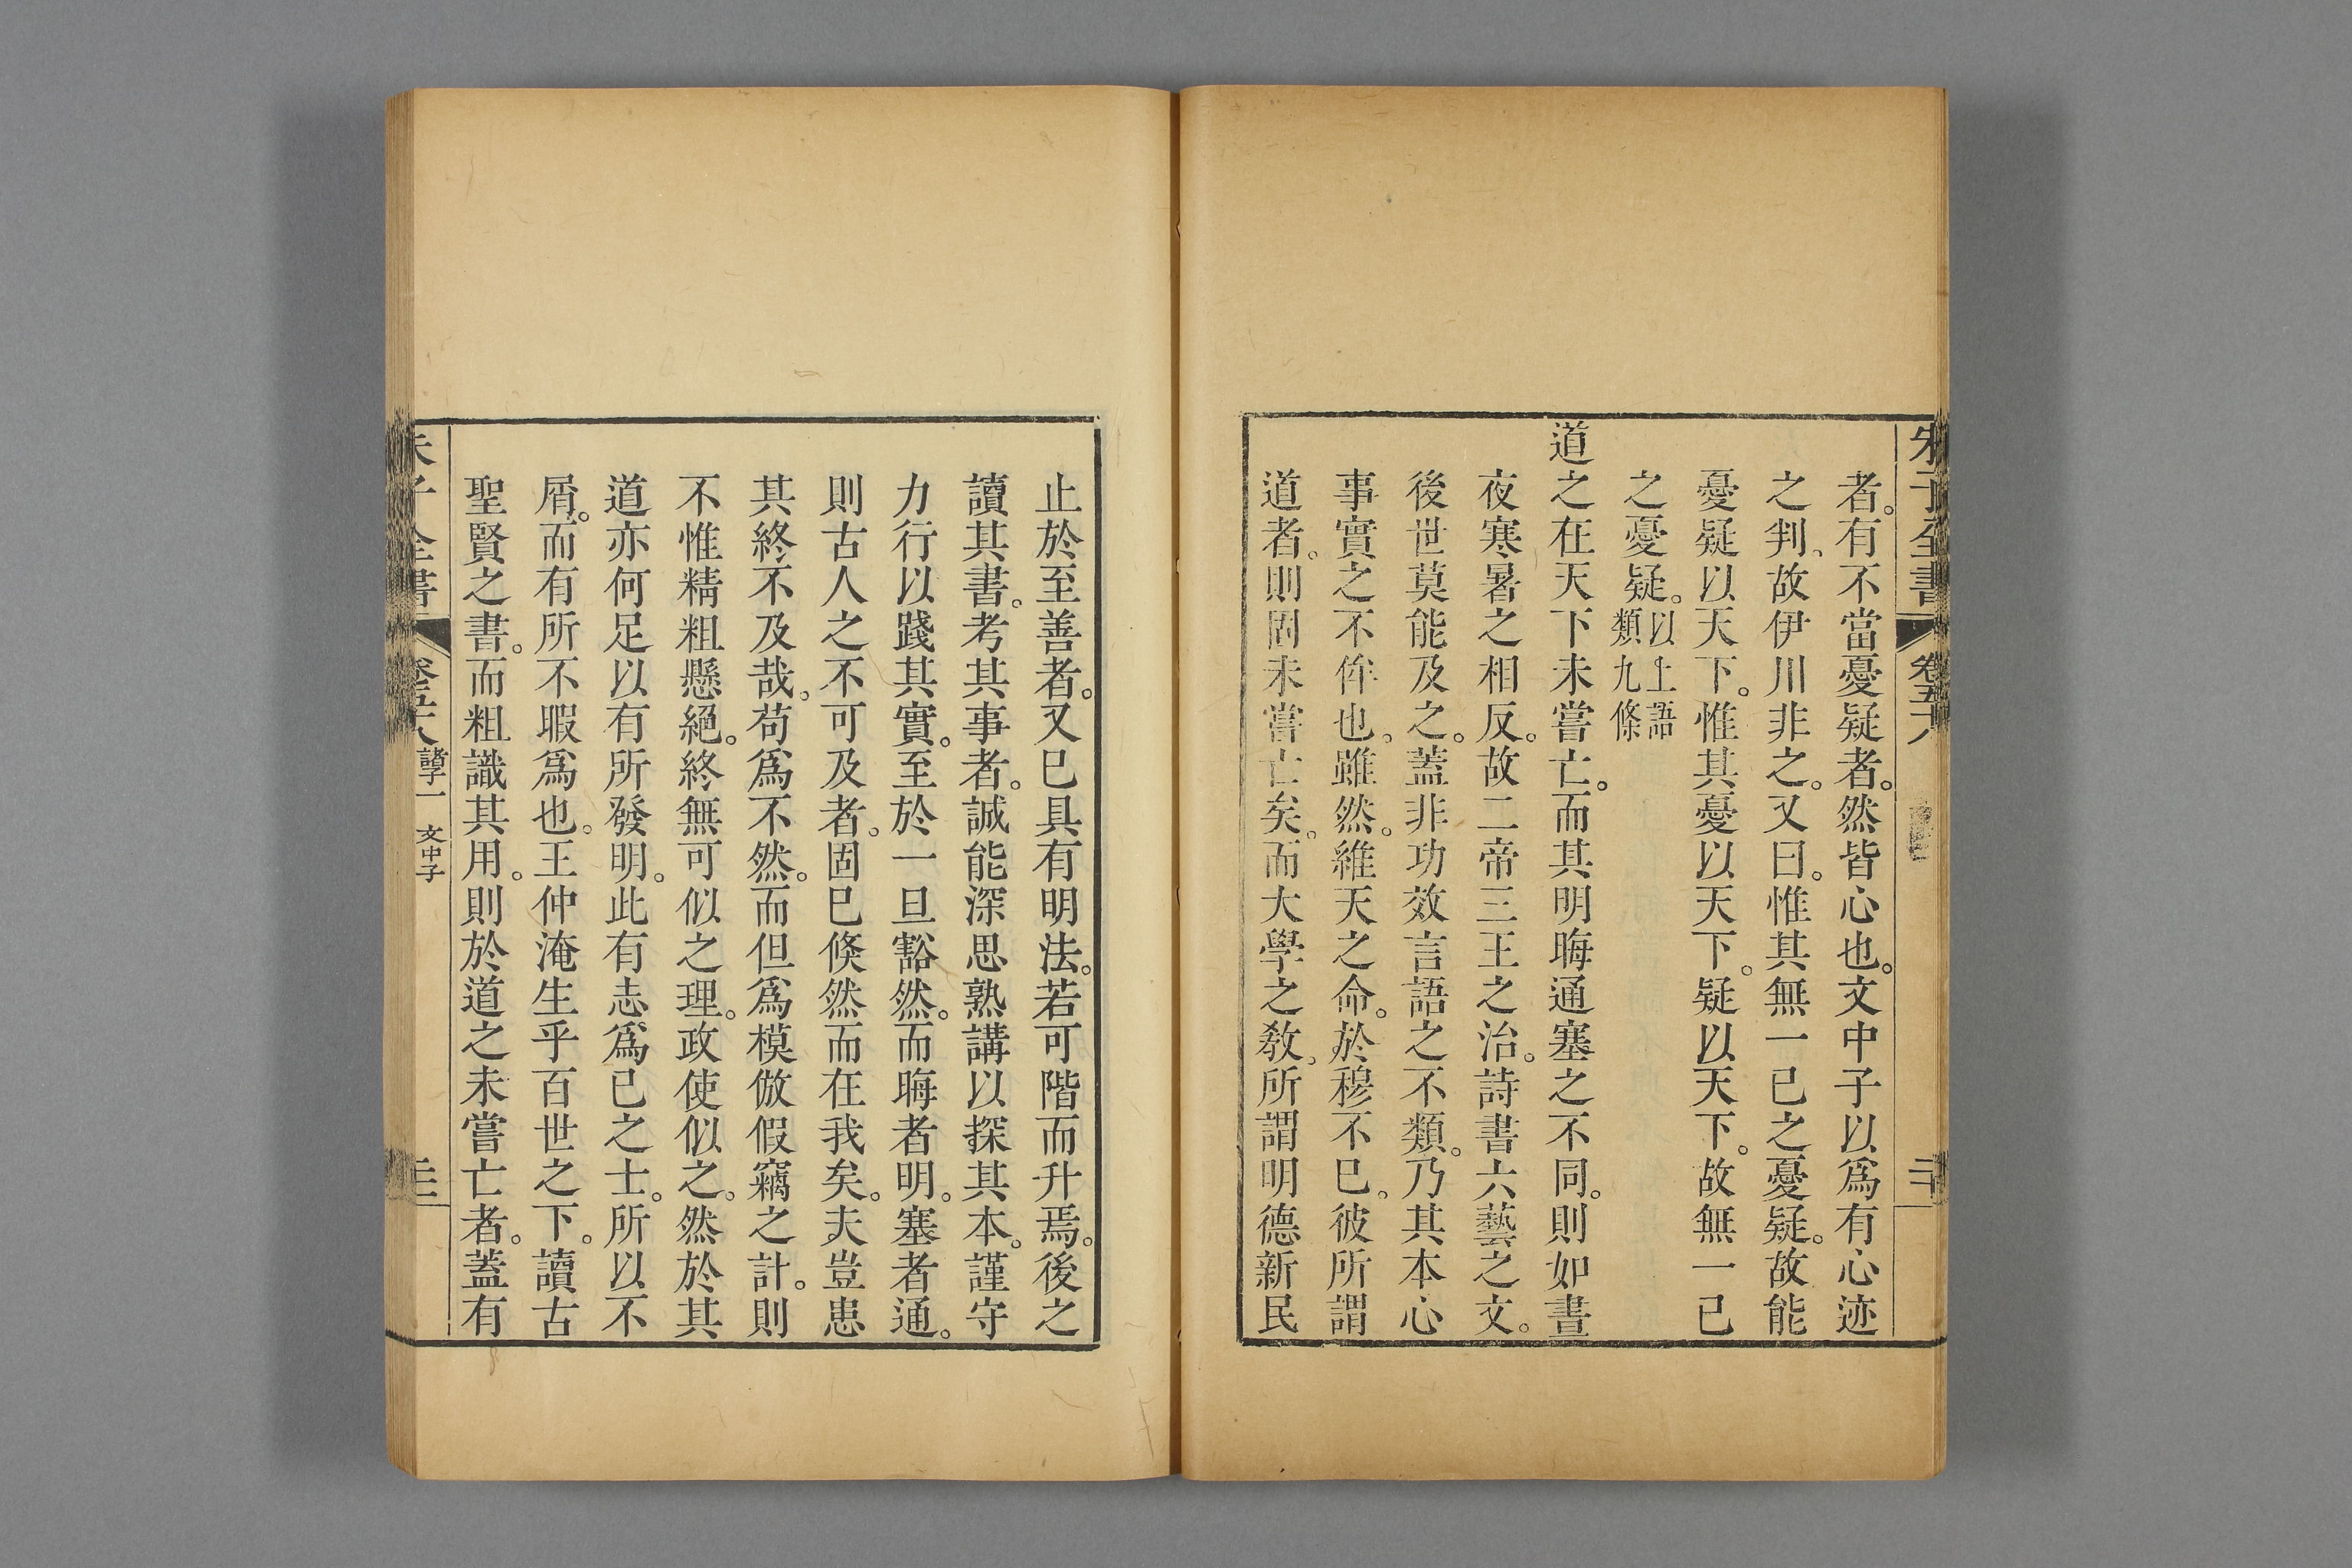 者。有不當憂疑者。然皆心也。文中子以爲有心迹
之判。故伊川非之。又曰。惟其無一己之憂疑。故能
憂疑以天下。惟其憂以天下。疑以天下。故無一己
之憂疑。以上語類九條
道之在天下未嘗亡。而其明晦通塞之不同。則如晝
夜寒暑之相反。故二帝三王之治。詩書六藝之文。
後世莫能及之。蓋非功效言語之不類。乃其本心
事實之不侔也。雖然。維天之命。於穆不已。彼所謂
道者。則固未嘗亡矣。而大學之敎。所謂明德新民
止於至善者。又已具有明法。若可階而升焉。後之
讀其書。考其事者。誠能深思熟講以探其本。謹守
力行以踐其實。至於一旦豁然。而晦者明。塞者通。
則古人之不可及者。固已倏然而在我矣。夫豈患
其終不及哉。苟爲不然。而但爲模倣假竊之計。則
不惟精粗懸絕。終無可似之理。政使似之。然於其
道亦何足以有所發明。此有志爲己之士。所以不
屑。而有所不暇爲也。王仲淹生乎百世之下。讀古
聖賢之書。而粗識其用。則於道之未嘗亡者。蓋有
朱子全書
文中子